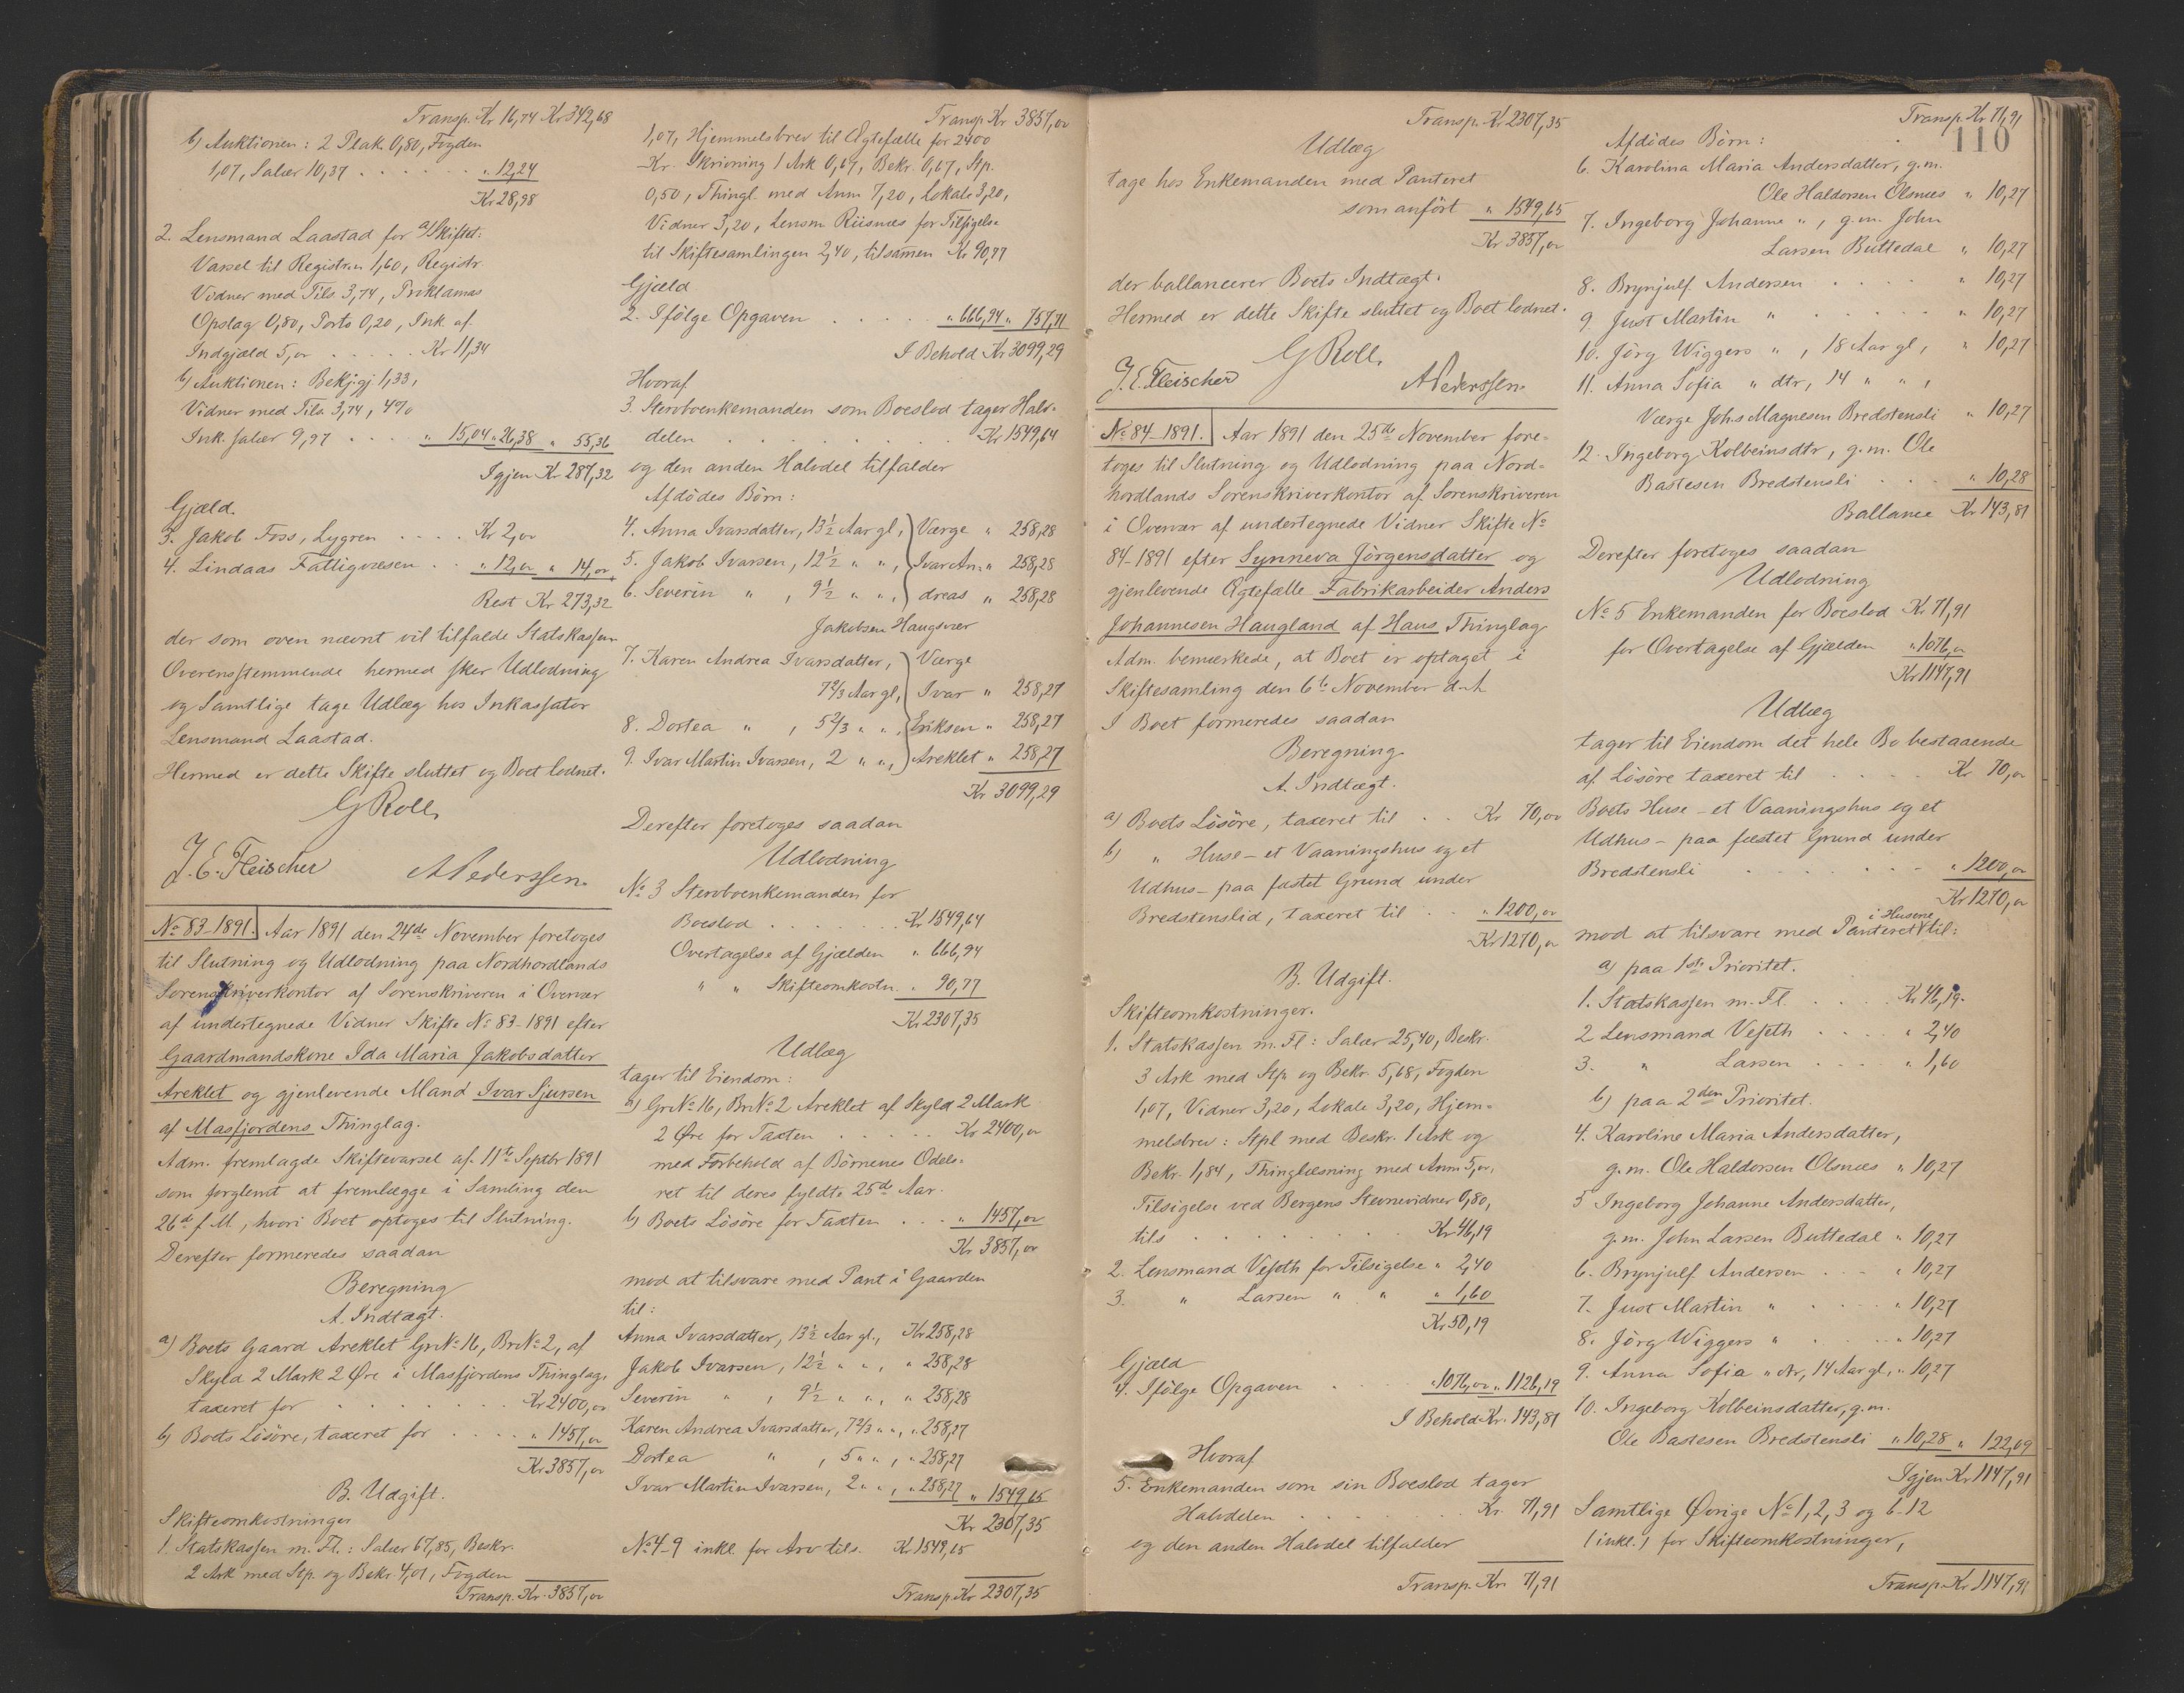 Transp. Kr 16,74 Kr 342,68
b) Auktionen: 2 Plak. 0,80, Fogden
1,07, Salær 10,37 . . . . . . " 12,24
Kr 28,98
2. Lensmand Laastad for a) Skiftet:
Varsel til Registr.n 1,60, Registr
Vidner med Tils 3,74, Proklamas
Opslag 0,80, Porto 0,20, Ink. af
Indgjæld 5,00 . . . . . Kr 11,34
b) Auktionen: Bekj.gj. 1,33,
Vidner med Tils 3,74, 4%
Ink. salær 9,97 . . . . " 15,04 " 26,38 " 55,36
Igjen Kr 287,32
Gjæld.
3. Jakob Foss, Lygren . . . . Kr 2,00
4. Lindaas Fattigvæsen . . " 12,00 " 14,00
Rest Kr 273,32
der som oven nævnt vil tilfalde Statskassen
Overensstemmende hermed sker Udlodning
og Samtlige tage Udlæg hos Inkassator
Lensmand Laastad.
Hermed er dette Skifte sluttet og Boet lodnet.
G Roll,
J. E. Fleischer A Pederssen.
No 83-1891. Aar 1891 den 24de November foretoges
til Slutning og Udlodning paa Nordhordlands
Sorenskriverkontor af Sorenskriveren i Overvær
af undertegnede Vidner Skifte No 83-1891 efter
Gaardmandskone Ida Maria Jakobsdatter
Areklet og gjenlevende Mand Ivar Sjursen
af Masfjordens Thinglag.
Adm. fremlagde Skiftevarsel af 11te Septbr 1891
som forglemt at fremlægge i Samling den
26de f. M., hvori Boet optoges til Slutning.
Derefter formeredes saadan
Beregning
A. Indtægt.
a) Boets Gaard Areklet Gr No 16, Br No 2, af
Skyld 2 Mark 2 Øre i Masfjordens Thinglag,
taxeret for . . . . . . . Kr 2400,00
b) Boets Lösöre, taxeret for . . . . " 1457,00
Kr 3857,00
B. Udgift.
Skifteomkostninger
1. Statskassen m. Fl.: Salær 67,85, Beskr.
2 Ark med Stp. og Bekr. 4,01, Fogden
Transp. Kr. 3857,00
Transp Kr 3857,00
1,07, Hjemmelsbrev til Ægtefælle for 2400
Kr. Skrivning 1 Ark 0,67, Bekr. 0,67, Stp.
0,50, Thingl. med Anm 7,20, Lokale 3,20,
Vidner 3,20, Lensm Riisnæs for Tilsigelse
til Skiftesamlingen 2,40, tilsammen Kr 90,77
Gjæld
2. Ifölge Opgaven . . . . . " 666,94 " 757,71
I Behold Kr 3099,29
Hvoraf
3. Stervboenkemanden som Boeslod tager Halv-
delen . . . . . . . . Kr 1549,64
og den anden Halvdel tilfalder
Afdödes Börn:
4. Anna Ivarsdatter, 13½ Aar gl, Værge " 258,28
5. Jakob Ivarsen, 12½ " ", Ivar An- " 258,28
6. Severin " , 9½ " ", dreas " 258,28
Jakobsen Haugsvær
7. Karen Andrea Ivarsdatter, Værge
7 2/3 Aar gl, Ivar " 258,27
8. Dortea " , 5 2/3 " ", Eriksen " 258,27
9. Ivar Martin Ivarsen, 2 " ", Areklet " 258,27
Kr 3099,29
Derefter foretoges saadan
Udlodning
No 3 Stervboenkemanden for
Boeslod . . . . . . . Kr 1549,64
Overtagelse af Gjælden " 666,94
" " Skifteomkostn. " 90,77
Kr 2307,35
Udlæg
tager til Eiendom:
a) Gr No 16, Br No 2 Areklet af Skyld 2 Mark
2 Øre for Taxten . . . . . Kr 2400,00
med Forbehold af Børnenes Odels-
ret til deres fyldte 25de Aar.
b) Boets Lösöre for Taxten . . . " 1457,00
Kr 3857,00
mod at tilsvare med Pant i Gaarden
til:
Anna Ivarsdatter, 13½ Aar gl., Kr 258,28
Jakob Ivarsen, 12½ " ", " 258,28
Severin " , 9½ " ", " 258,28
Karen Andrea Ivarsdatter, 7 2/3 " ", " 258,27
Dortea " , 5 " ", " 258,27
Ivar Martin Ivarsen, 2 " ", " 258,27 " 1549,65
Kr 2307,35
No 4-9 inkl. for Arv tils. Kr 1549,65
Transp. Kr 2307,35
Transp. Kr 2307,35
Udlæg
tage hos Enkemanden med Panteret
som anfört " 1549,65
Kr 3857,00
der ballancerer Boets Indtægt.
Hermed er dette Skifte sluttet og Boet lodnet.
G Roll,
J. E. Fleischer A Pederssen.
No 84-1891. Aar 1891 den 25de November fore-
toges til Slutning og Udlodning paa Nord-
hordlands Sorenskriverkontor af Sorenskriveren
i Overvær af undertegnede Vidner Skifte No
84-1891 efter Synneva Jörgensdatter og
gjenlevende Ægtefælle Fabrikarbeider Anders
Johannesen Haugland af Haus Thinglag
Adm. bemærkede, at Boet er optaget i
Skiftesamling den 6te November d. A.
I Boet formeredes saadan
Beregning
A. Indtægt.
a) Boets Lösöre, taxeret til . . Kr 70,00
b) " Huse – et Vaaningshus og et
Udhus – paa fæstet Grund under
Bredstenslid, taxeret til . . " 1200,00
Kr 1270,00
B. Udgift.
Skifteomkostninger.
1. Statskassen m. Fl: Salær 25,40, Beskr.
3 Ark med Stp. og Bekr. 5,68, Fogden
1,07, Vidner 3,20, Lokale 3,20, Hjem-
melsbrev: Stpl med Beskr. 1 Ark og
Bekr. 1,84, Thinglæsning med Anm 5,00,
Tilsigelse ved Bergens Stevnevidner 0,80,
tils . . . . . . . . Kr 46,19
2. Lensmand Veseth for Tilsigelse " 2,40
3. " Larsen " " " 1,60
Kr 50,19
Gjæld
4. Ifölge Opgaven . . . " 1076,00 " 1126,19
I Behold Kr. 143,81
Hvoraf
5. Enkemanden som sin Boeslod tager
Halvdelen . . . . . . . Kr. 71,91
og den anden Halvdel tilfalder
Transp. Kr. 71,91
Transp. Kr 71,91
110
Afdödes Börn:
6. Karolina Maria Andersdatter, g. m.
Ole Haldorsen Olsnæs " 10,27
7. Ingeborg Johanne " , g. m. John
Larsen Buttedal " 10,27
8. Brynjulf Andersen . . . . " 10,27
9. Just Martin " . . . . . " 10,27
10. Jörg Wiggers " , 18 Aar gl, " 10,27
11. Anna Sofia " dtr, 14 " ",
Værge Johs Magnesen Bredstensli " 10,27
12. Ingeborg Kolbeinsdtr, g. m. Ole
Bastesen Bredstensli . . . " 10,28
Ballance Kr 143,81
Derefter foretoges saadan
Udlodning
No 5 Enkemanden for Boeslod Kr. 71,91
for Overtagelse af Gjælden " 1076,00
Kr 1147,91
Udlæg
tager til Eiendom det hele Bo bestaaende
af Lösöre taxeret til . . . . Kr 70,00
Boets Huse – et Vaaningshus og et
Udhus – paa fæstet Grund under
Bredstensli . . . . . . . " 1200,00
Kr 1270,00
i Husene
mod at tilsvare med Panteret til:
a) paa 1ste Prioritet.
1. Statskassen m. Fl. . . . . Kr 46,19.
2 Lensmand Veseth . . . . . " 2,40
3. " Larsen . . . . " 1,60
b) paa 2den Prioritet.
4. Karoline Maria Andersdatter,
g. m. Ole Haldorsen Olsnæs " 10,27
5 Ingeborg Johanne Andersdatter,
g. m. John Larsen Buttedal " 10,27
6. Brynjulf Andersen . . . " 10,27
7. Just Martin " . . . . " 10,27
8. Jörg Wiggers " . . . . " 10,27
9. Anna Sofia " dtr, 14 Aar gl, " 10,27
10. Ingeborg Kolbeinsdatter, g. m.
Ole Bastesen Bredstensli " 10,28 " 122,09
Igjen Kr 1147,91
Samtlige Øvrige No 1, 2, 3 og 6-12
(inkl.) for Skifteomkostninger,
Transp. Kr 1147,91